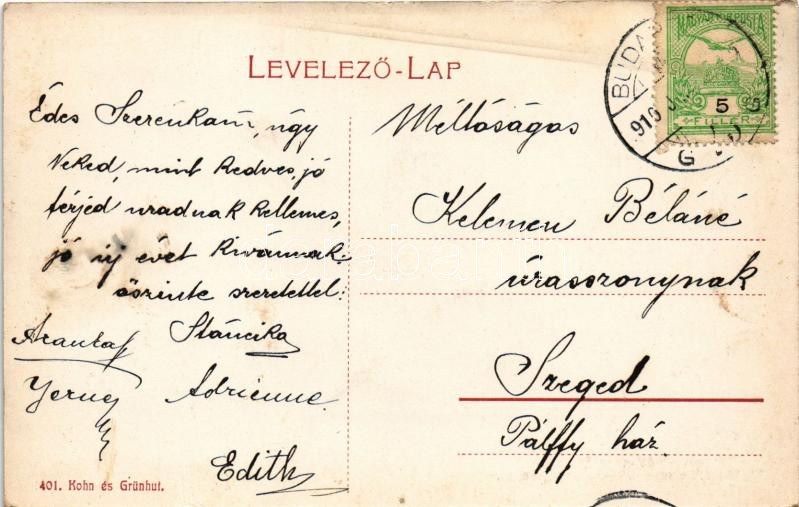 LEVELEZŐ-LAP
Édes Szerénkám, úgy
Neked, mint kedves, jó
férjed uradnak kellemes,
jó új évet kivánnak
őszinte szeretettel:
Stáncika
Adrienne
Edith
401. Kohn és Grünhut.
MAGYAR KIR. POSTA
5
FILLÉR
BUDAP
910
G
Méltóságos
Kelemen Béláné
úrasszonynak
Szeged
Pálffy ház